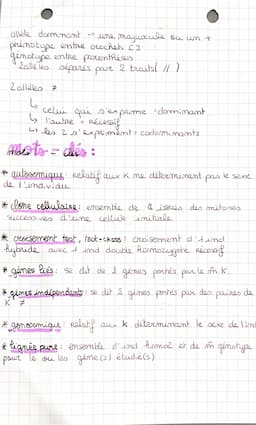 allèle dominant → une majuscule ou un +
phénotype entre crochets [ ]
génotype entre parenthèses
2 allèles séparés par 2 traits ( // )
2 allèles ≠
↳ celui qui s'exprime : dominant
↳ l'autre = récessif
↳ les 2 s'expriment = codominants
mots - clés :
* autosomique : relatif aux K ne déterminant pas le sexe
de l'individu
* clone cellulaire : ensemble de issues des mitoses
successives d'une cellule initiale
* croisement test, test-cross : croisement d'1 ind
hybride avec 1 ind double homozygote récessif
* gènes liés : se dit de 2 gènes portés par le m K.
* gènes indépendants : se dit 2 gènes portés par des paires de
K ≠
* gonosomique : Relatif aux K déterminant le sexe de l'ind
* lignée pure : ensemble d'ind homoz et de m génotype
pour le ou les gène(s) étudié(s)